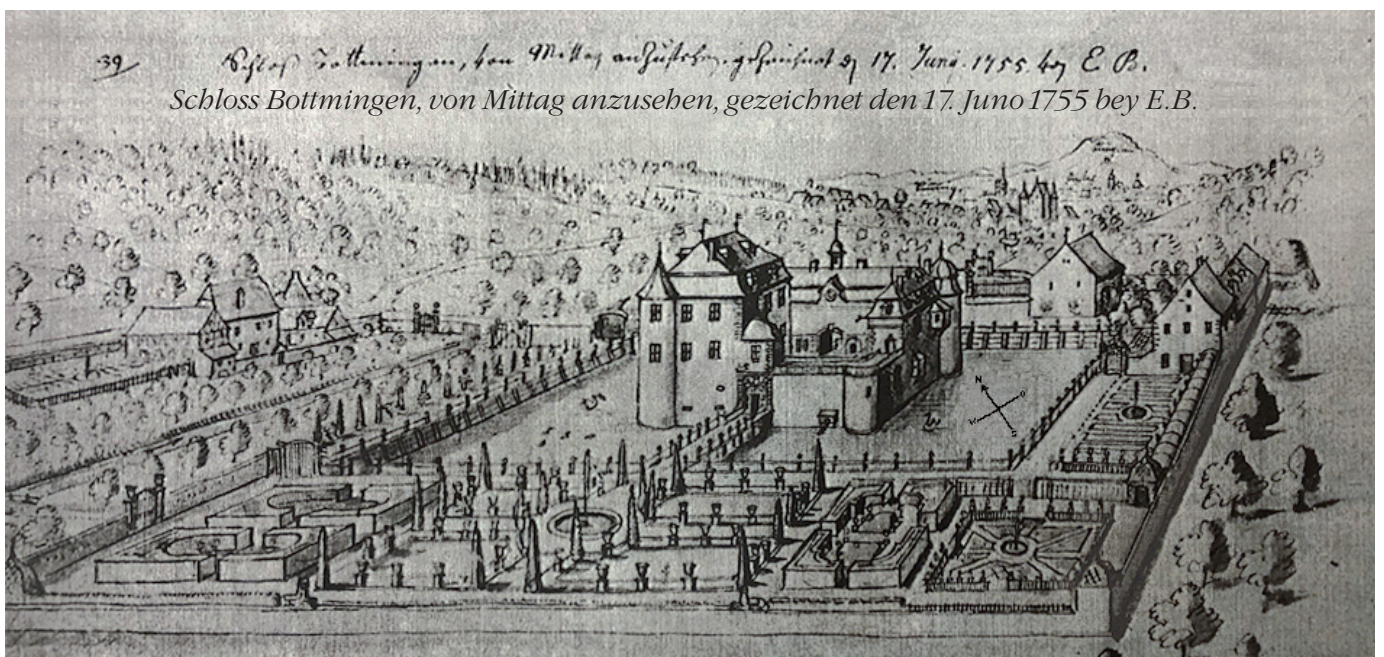 39
Schloß Bottmingen, von Mittag anzusehen, gezeichnet d 17. Juny. 1755. bey E. B.
Schloss Bottmingen, von Mittag anzusehen, gezeichnet den 17. Juno 1755 bey E.B.
N
O
W
S